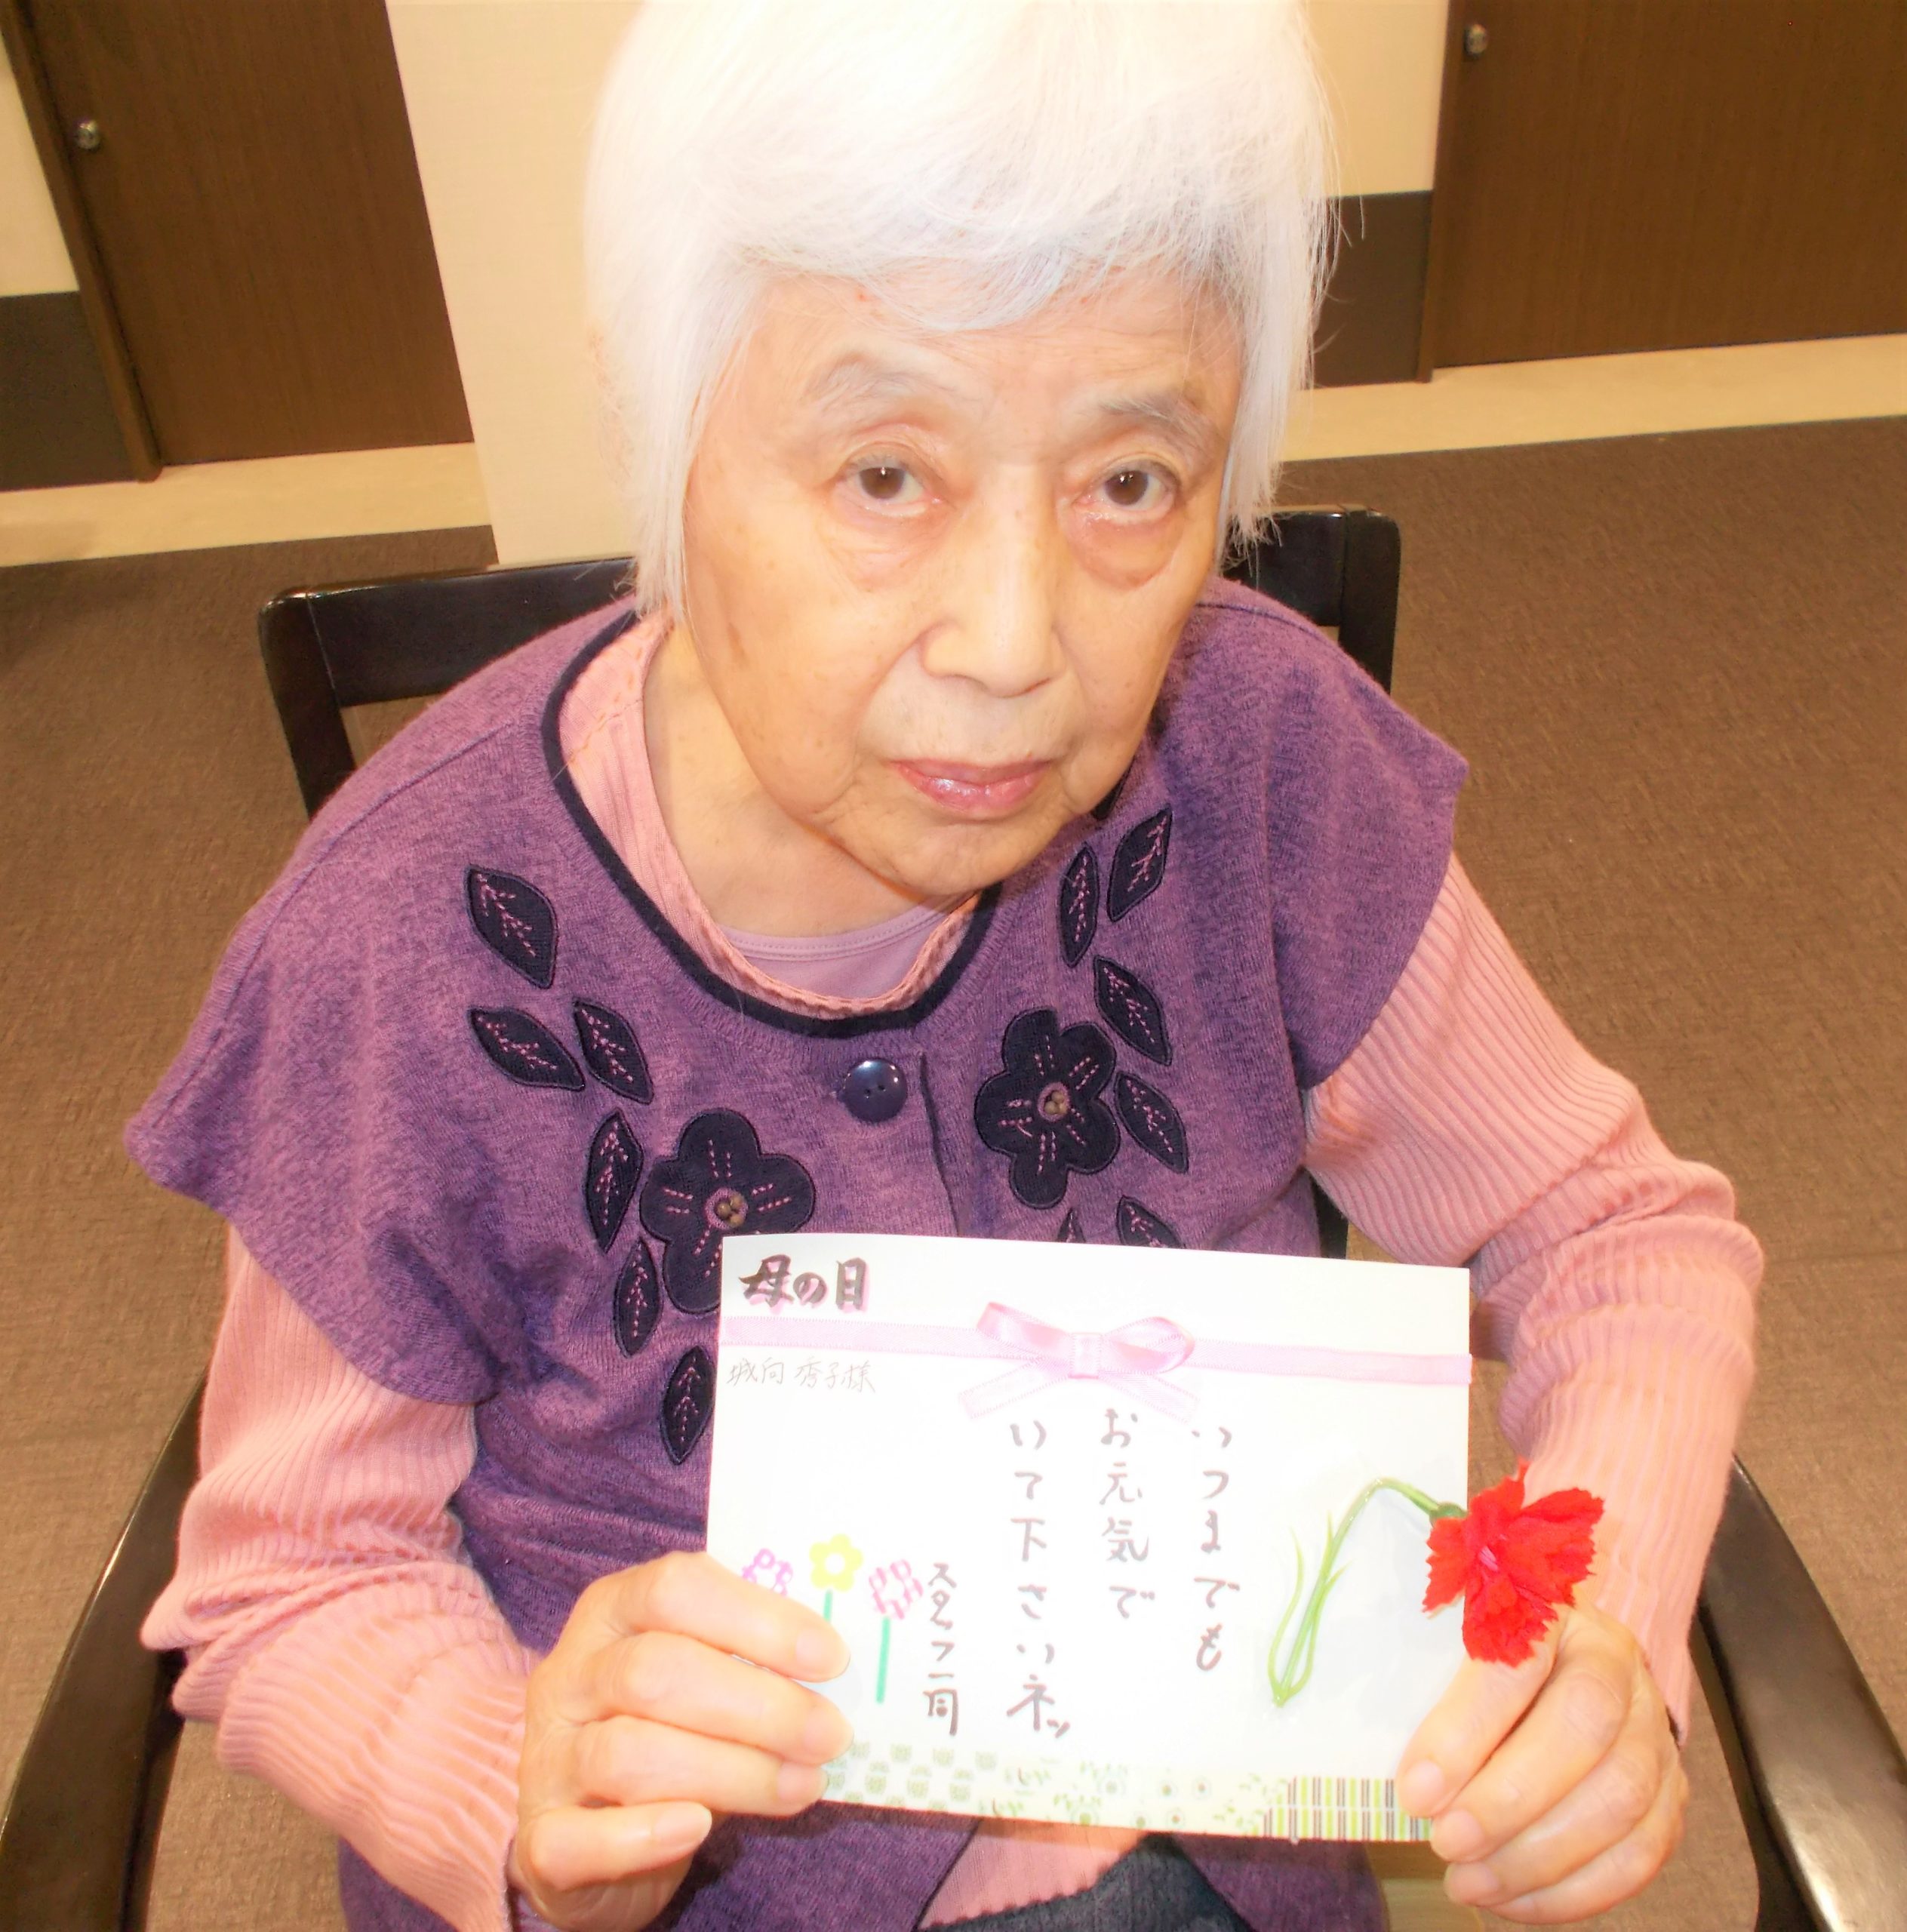 母の日
城向 秀子様
いつまでも
お元気で
いて下さいネッ
スタッフ一同